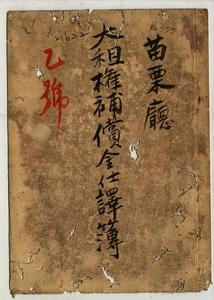 苗栗廳
大租權補償金仕譯簿
乙號